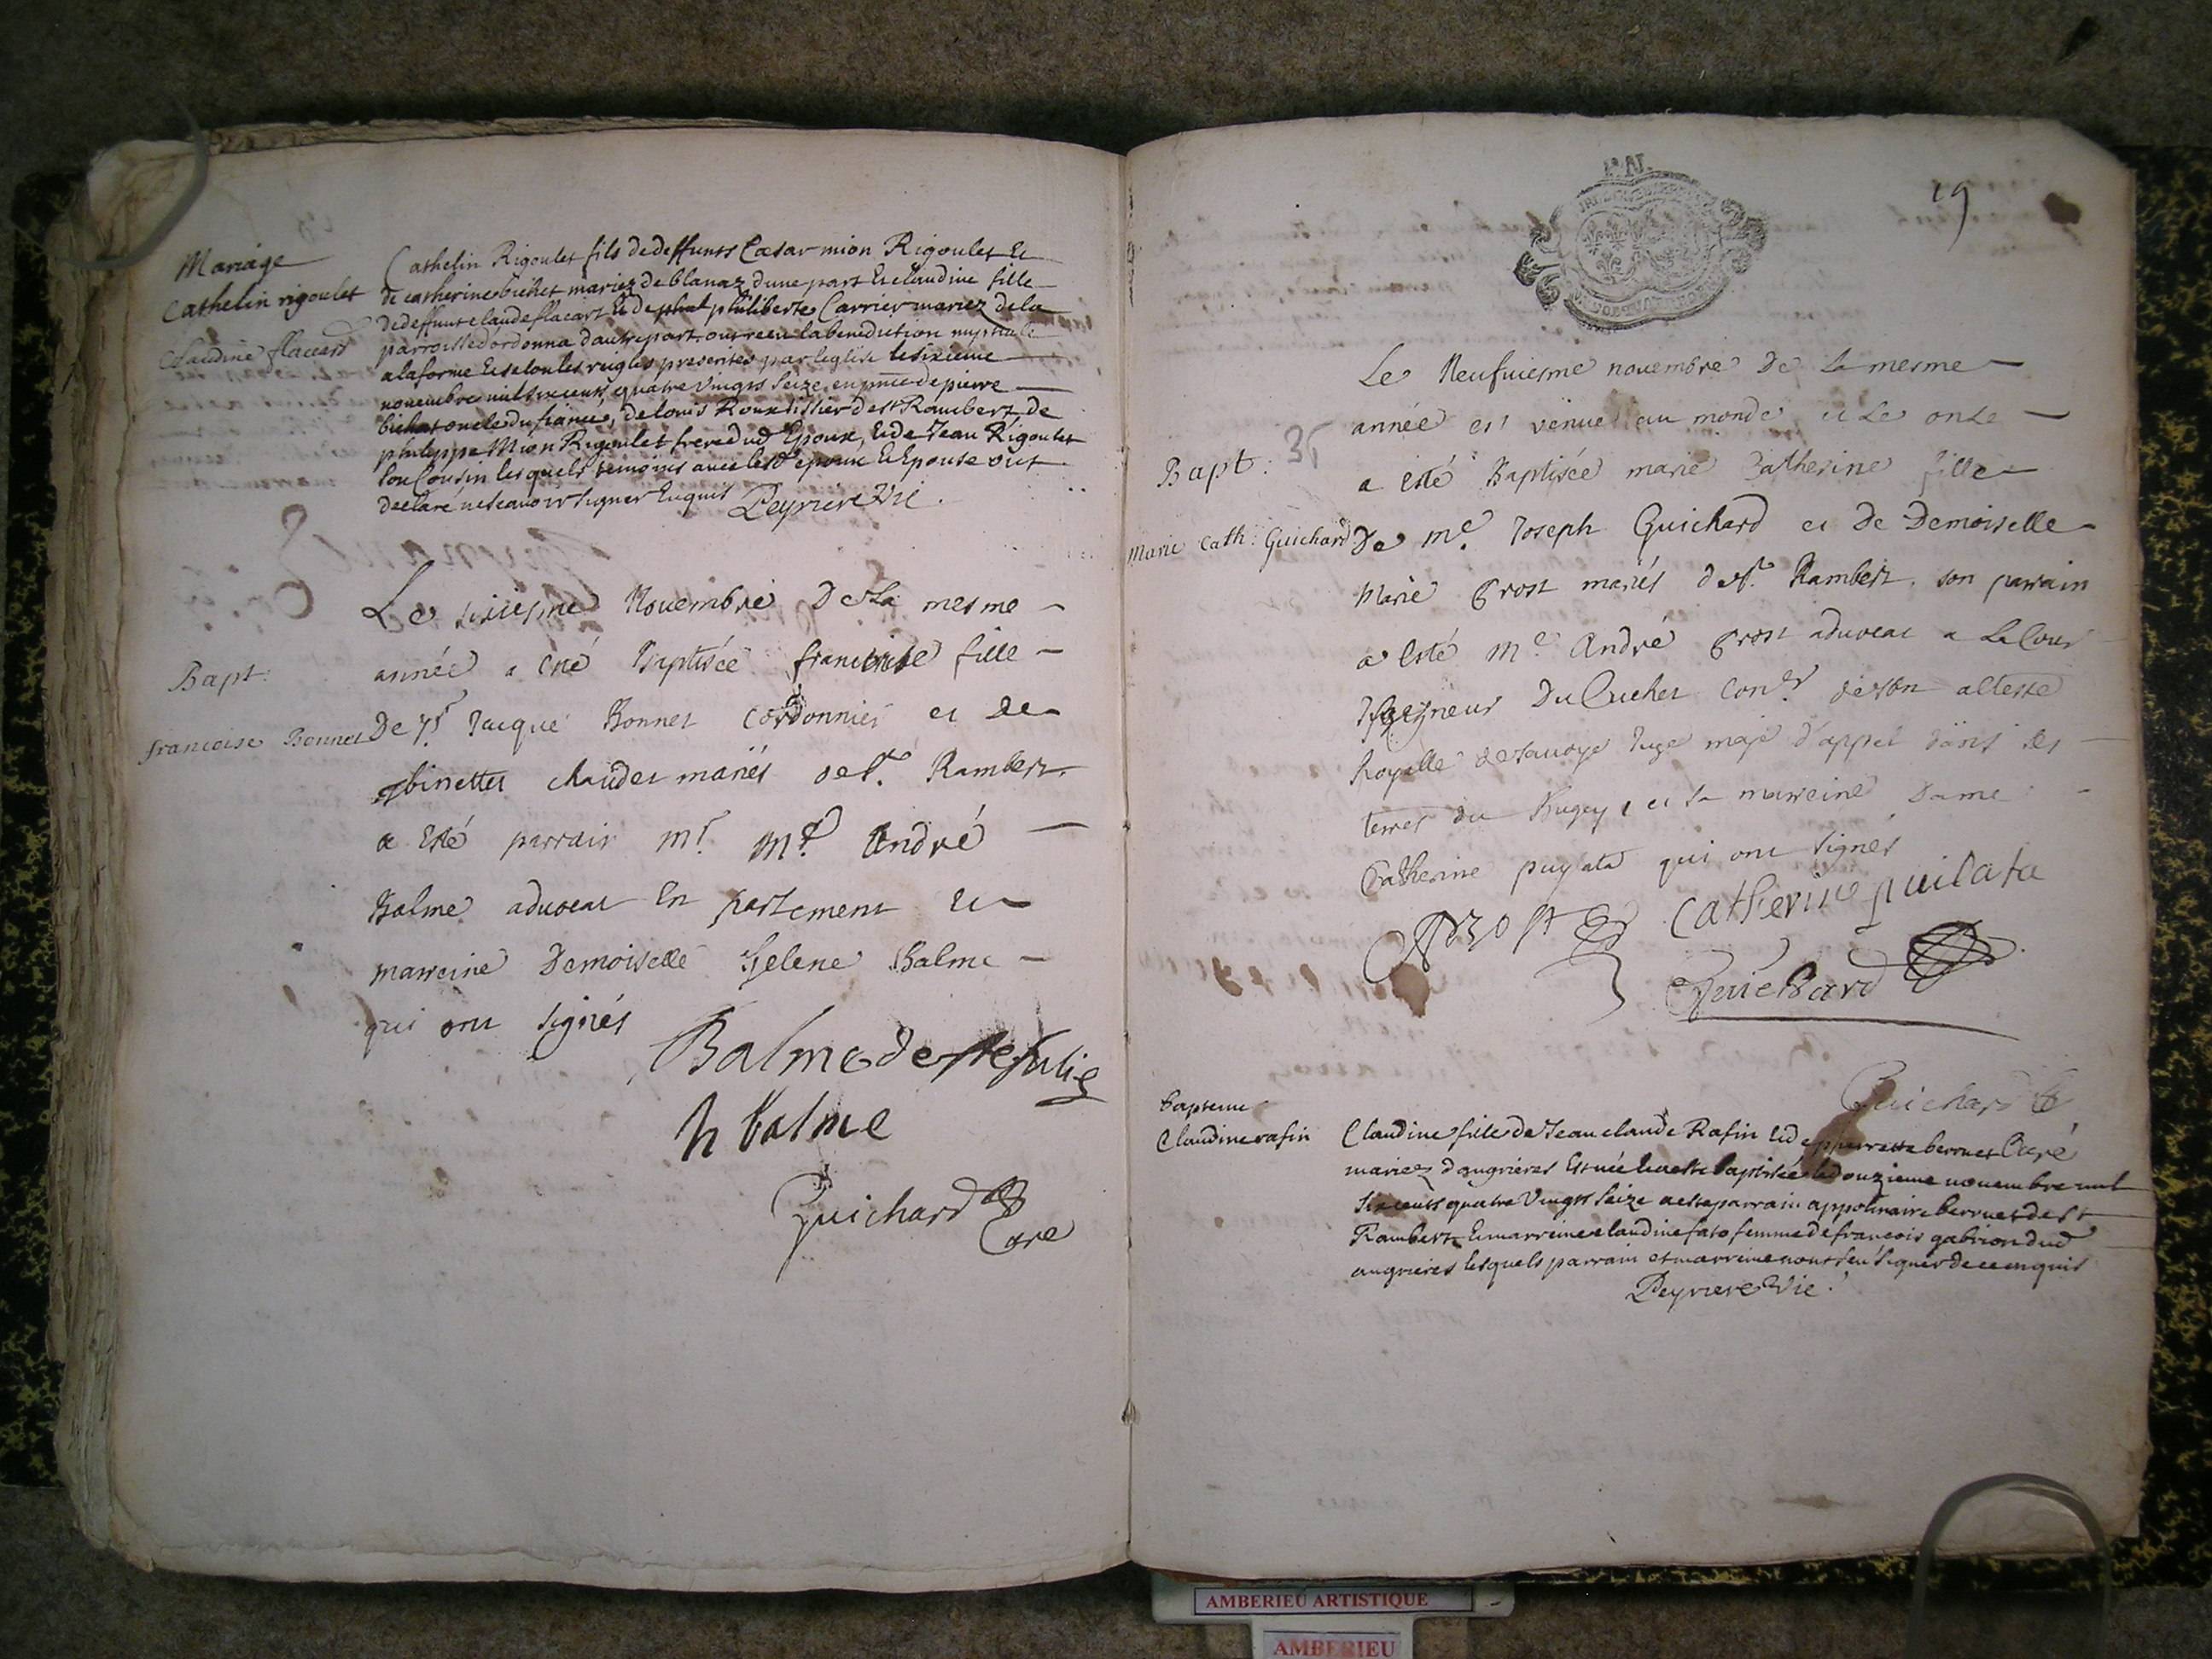 Mariage
Cathelin rigoulet
Claudine flaccard
Cathelin Rigoulet fils de deffunts Cæsar mion Rigoulet Et
de catherine bichet mariez de blanaz dune part Et claudine fille
de deffunt claude flacart Et de philiberte Carrier mariez de la
parroisse dordonna dautre part ont receu la benediction nuptiale
a la forme Et selon les reigles prescrites par leglise le sixieme
novembre mil six cents quatre vingts seize en pnce de pierre
bichat oncle du fiancé, de louis Roux tissier de st Rambert, de
philippe Mion Rigoulet frere dud Epoux, Et de Jean Rigoulet
son Cousin lesquels temoins avec lesd epoux Et Epouse ont
declaré ne scavoir signer Enquis Peyriere Vic.
Bapt:
francoise Bonnet
Le sixiesme Novembre De La mesme
année a esté Baptisée francoise fille
De Sr. Jacque Bonnet Cordonnier et de
binette chaudet mariés de St. Rambert.
a Esté parrain Mr. Me. André
Balme advocat En parlement Et
marreine Demoiselle helene Balme
qui ont signés
Balme de ste Julie
h balme
Guichard
Curé
19
Le Neufviesme novembre De La mesme
année est venue au monde et Le onze
Bapt: 35
a esté Baptisée marie Catherine fille
Marie Cath: Guichard
De Me. Joseph Guichard et De Demoiselle
Marie Prost mariés de St. Rambert. son parrain
a Esté Me André Prost advocat a La Cour
seigneur Du Cuchet Coner de son altesse
Royalle de Savoye Juge maje d'appel dans ses
terres du Bugey, et sa marreine Dame
Catherine puylata qui ont signés
Prost Catherine puilata
Guichard
Guichard
Curé
bapteme
Claudine rafin
Claudine fille de Jean claude Rafin Et de pierrette berruet
mariez d'angrieres Est née Et a este baptisée le douzieme novembre mil
six cents quatre Vingts seize a este parrain appolinaire berruet de st
Rambert Et marreine claudine fato femme de francois gabrion dud
angrieres lesquels parrain et marreine nont sceu signer de ce enquis
Peyriere Vic.
AMBERIEU ARTISTIQUE
AMBERIEU